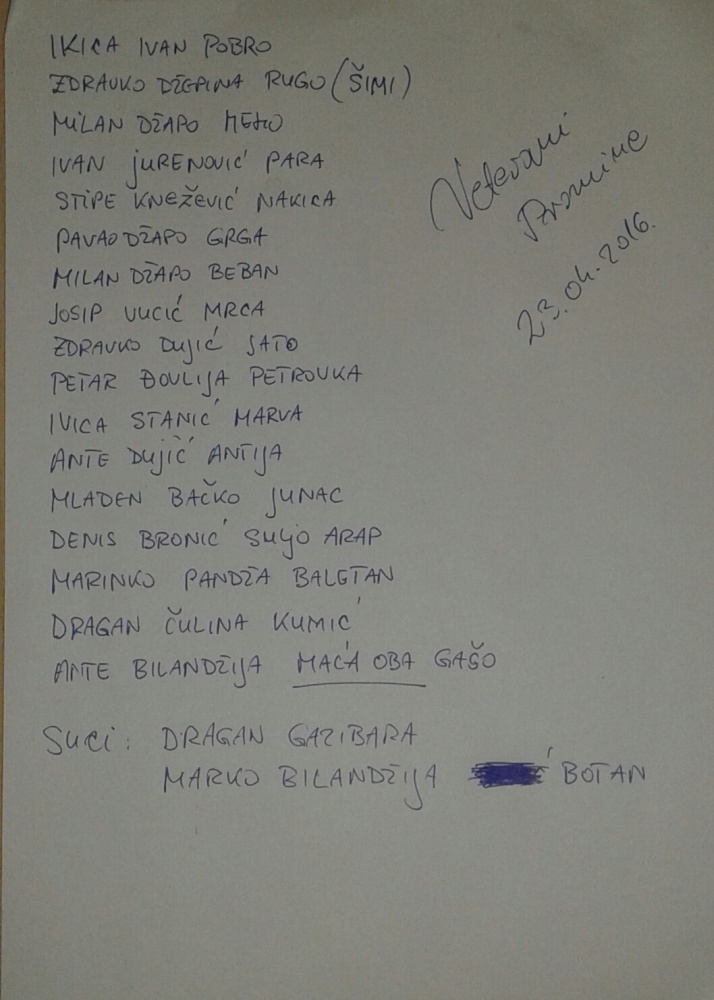 IKICA IVAN POBRO
ZDRAVKO DŽEPINA RUGO (ŠIMI)
MILAN DŽAPO
IVAN JURENOVIĆ PARA
STIPE KNEŽEVIĆ NAKICA
PAVAO DŽAPO GRGA
MILAN DŽAPO BEBAN
JOSIP VUCIĆ MRCA
ZDRAVKO DUJIĆ SATO
PETAR ĐOVLIJA PETROVKA
IVICA STANIĆ MARVA
ANTE DUJIĆ ANTIJA
MLADEN BAČKO JUNAC
DENIS BRONIĆ SULJO ARAP
MARINKO PANDŽA BALETAN
DRAGAN ČULINA KUMIĆ
ANTE BILANDŽIJA MAĆA OBA GAŠO
SUCI: DRAGAN GAZIBARA
MARKO BILANDŽIJA BOTAN
Veterani
Promine
23.04.2016.